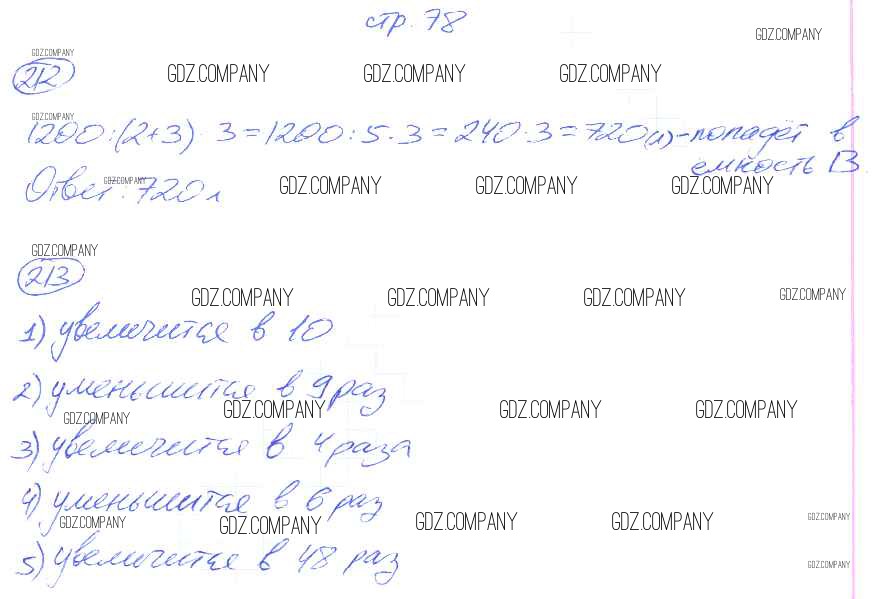 стр. 78
GDZ.COMPANY
GDZ.COMPANY
212 GDZ.COMPANY GDZ.COMPANY GDZ.COMPANY
GDZ.COMPANY
1200:(2+3)·3=1200:5·3=240·3=720(л)-попадёт в
емкость В.
Ответ: 720 л
GDZ.COMPANY GDZ.COMPANY GDZ.COMPANY GDZ.COMPANY
GDZ.COMPANY
213
GDZ.COMPANY GDZ.COMPANY GDZ.COMPANY GDZ.COMPANY
1) увеличится в 10
2) уменьшится в 9 раз
GDZ.COMPANY GDZ.COMPANY GDZ.COMPANY GDZ.COMPANY
3) увеличится в 4 раза
4) уменьшится в 6 раз
GDZ.COMPANY GDZ.COMPANY GDZ.COMPANY GDZ.COMPANY GDZ.COMPANY
5) увеличится в 48 раз
GDZ.COMPANY